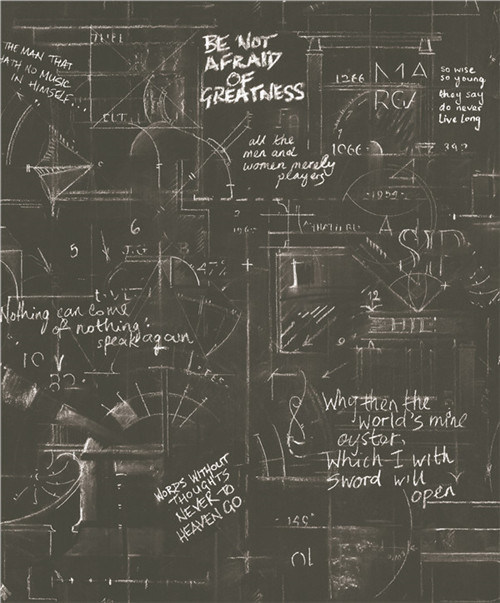 THE MAN THAT
HATH NO MUSIC
IN HIMSELF...
BE NOT
AFRAID
OF
GREATNESS
1266
MA
RGA
so wise
so young
they say
do never
live long
all the
men and
women merely
players
1066
392
6
5
B
SID
12
Nothing can come
of nothing:
speak again
10
32
Why then the
world's mine
oyster,
Which I with
sword will
open
WORDS WITHOUT
THOUGHTS
NEVER TO
HEAVEN GO